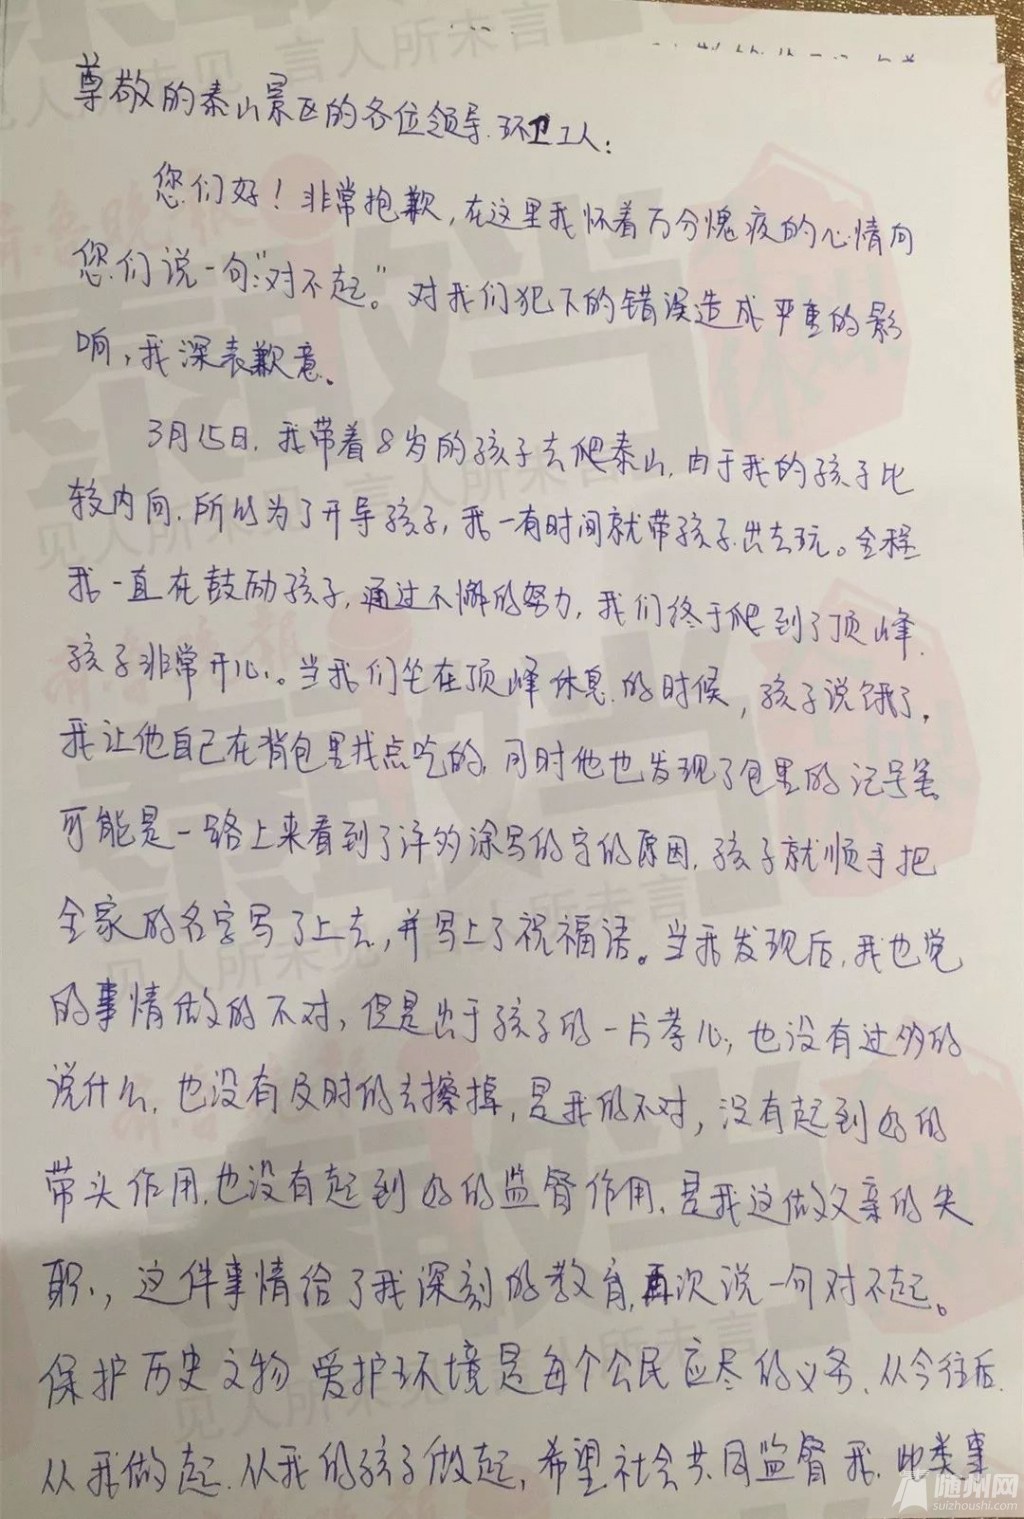 尊敬的泰山景区的各位领导.环卫工人:
您们好！非常抱歉,在这里我怀着万分愧疚的心情向
您们说一句:"对不起。"对我们犯下的错误造成严重的影
响,我深表歉意.
3月15日.我带着8岁的孩子去爬泰山.由于我的孩子比
较内向.所以为了开导孩子,我一有时间就带孩子出去玩。全程
我一直在鼓励孩子,通过不懈的努力,我们终于爬到了顶峰.
孩子非常开心。当我们坐在顶峰休息的时候,孩子说饿了,
我让他自己在背包里找点吃的,同时他也发现了包里的记号笔
可能是一路上来看到了许多涂写的字的原因.孩子就顺手把
全家的名字写了上去,并写上了祝福语。当我发现后,我也觉
的事情做的不对,但是出于孩子的一片孝心,也没有过多的
说什么,也没有及时的去擦掉,是我的不对,没有起到好的
带头作用.也没有起到好的监督作用.是我这做父亲的失
职.,这件事情给了我深刻的教育,再次说一句对不起。
保护历史文物 爱护环境是每个公民应尽的义务.从今往后.
从我做起.从我的孩子做起,希望社会共同监督我.此类事
见人所未见 言人所未言
泰敢当
随州网
suizhoushi.com